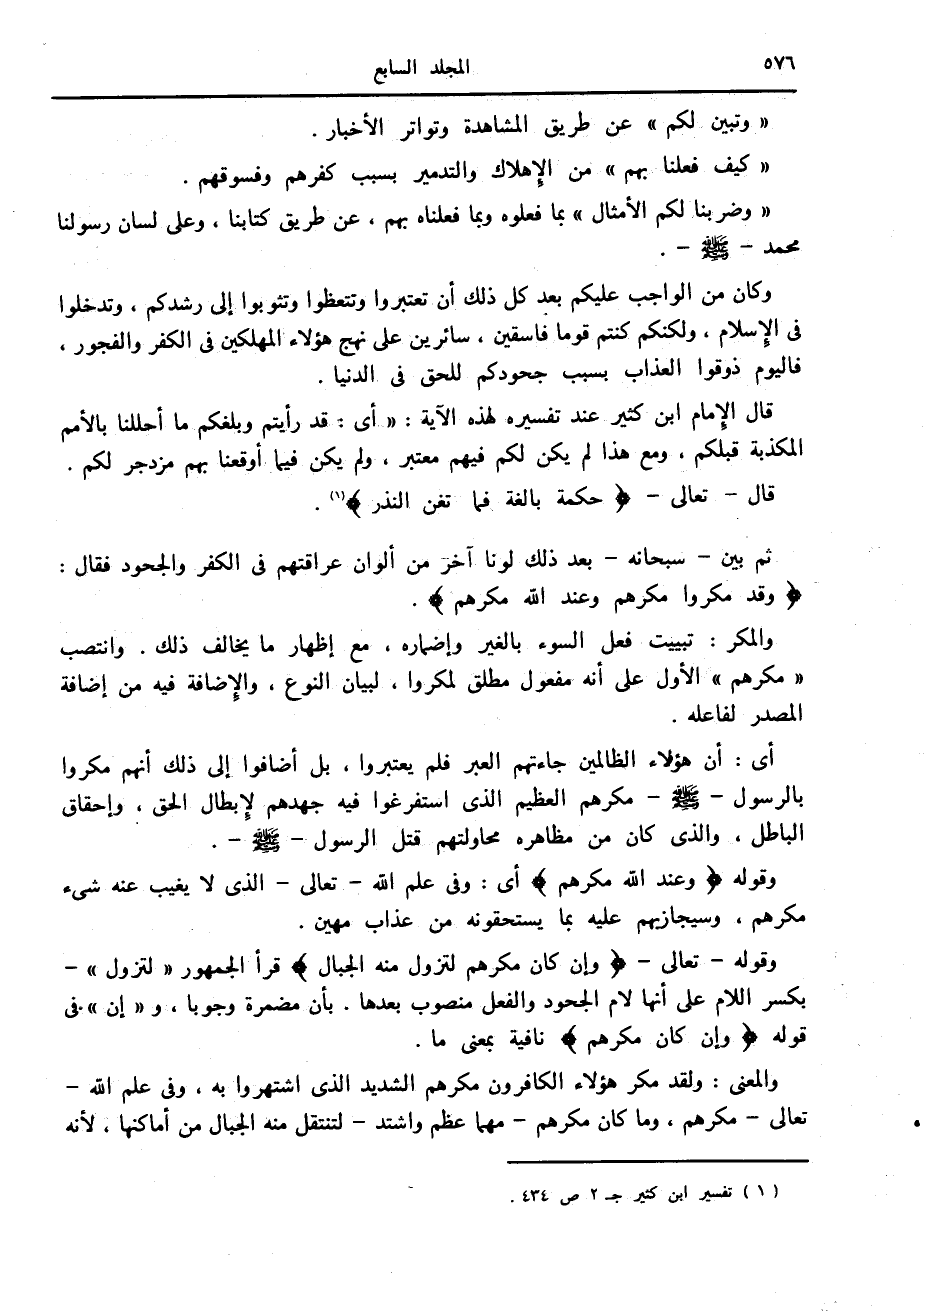 ٥٧٦ المجلد السابع
« وتبين لكم » عن طريق المشاهدة وتواتر الأخبار .
« كيف فعلنا بهم » من الإهلاك والتدمير بسبب كفرهم وفسوقهم .
« وضربنا لكم الأمثال » بما فعلوه وبما فعلناه بهم ، عن طريق كتابنا ، وعلى لسان رسولنا
محمد – ﷺ – .
وكان من الواجب عليكم بعد كل ذلك أن تعتبروا وتتعظوا وتثوبوا إلى رشدكم ، وتدخلوا
فى الإسلام ، ولكنكم كنتم قوما فاسقين ، سائرين على نهج هؤلاء المهلكين فى الكفر والفجور ،
فاليوم ذوقوا العذاب بسبب جحودكم للحق فى الدنيا .
قال الإمام ابن كثير عند تفسيره لهذه الآية : « أى : قد رأيتم وبلغكم ما أحللنا بالأمم
المكذبة قبلكم ، ومع هذا لم يكن لكم فيهم معتبر ، ولم يكن فيما أوقعنا بهم مزدجر لكم .
قال – تعالى – ﴿ حكمة بالغة فما تغن النذر ﴾(١) .
ثم بين – سبحانه – بعد ذلك لونا آخر من ألوان عراقتهم فى الكفر والجحود فقال :
﴿ وقد مكروا مكرهم وعند الله مكرهم ﴾ .
والمكر : تبييت فعل السوء بالغير وإضماره ، مع إظهار ما يخالف ذلك . وانتصب
« مكرهم » الأول على أنه مفعول مطلق لمكروا ، لبيان النوع ، والإضافة فيه من إضافة
المصدر لفاعله .
أى : أن هؤلاء الظالمين جاءتهم العبر فلم يعتبروا ، بل أضافوا إلى ذلك أنهم مكروا
بالرسول – ﷺ – مكرهم العظيم الذى استفرغوا فيه جهدهم لإبطال الحق ، وإحقاق
الباطل ، والذى كان من مظاهره محاولتهم قتل الرسول – ﷺ – .
وقوله ﴿ وعند الله مكرهم ﴾ أى : وفى علم الله – تعالى – الذى لا يغيب عنه شىء
مكرهم ، وسيجازيهم عليه بما يستحقونه من عذاب مهين .
وقوله – تعالى – ﴿ وإن كان مكرهم لتزول منه الجبال ﴾ قرأ الجمهور « لتزول » –
بكسر اللام على أنها لام الجحود والفعل منصوب بعدها . بأن مضمرة وجوبا ، و « إن » فى
قوله ﴿ وإن كان مكرهم ﴾ نافية بمعنى ما .
والمعنى : ولقد مكر هؤلاء الكافرون مكرهم الشديد الذى اشتهروا به ، وفى علم الله –
تعالى – مكرهم ، وما كان مكرهم – مهما عظم واشتد – لتنتقل منه الجبال من أماكنها ، لأنه
( ١ ) تفسير ابن كثير جـ ٢ ص ٤٣٤ .